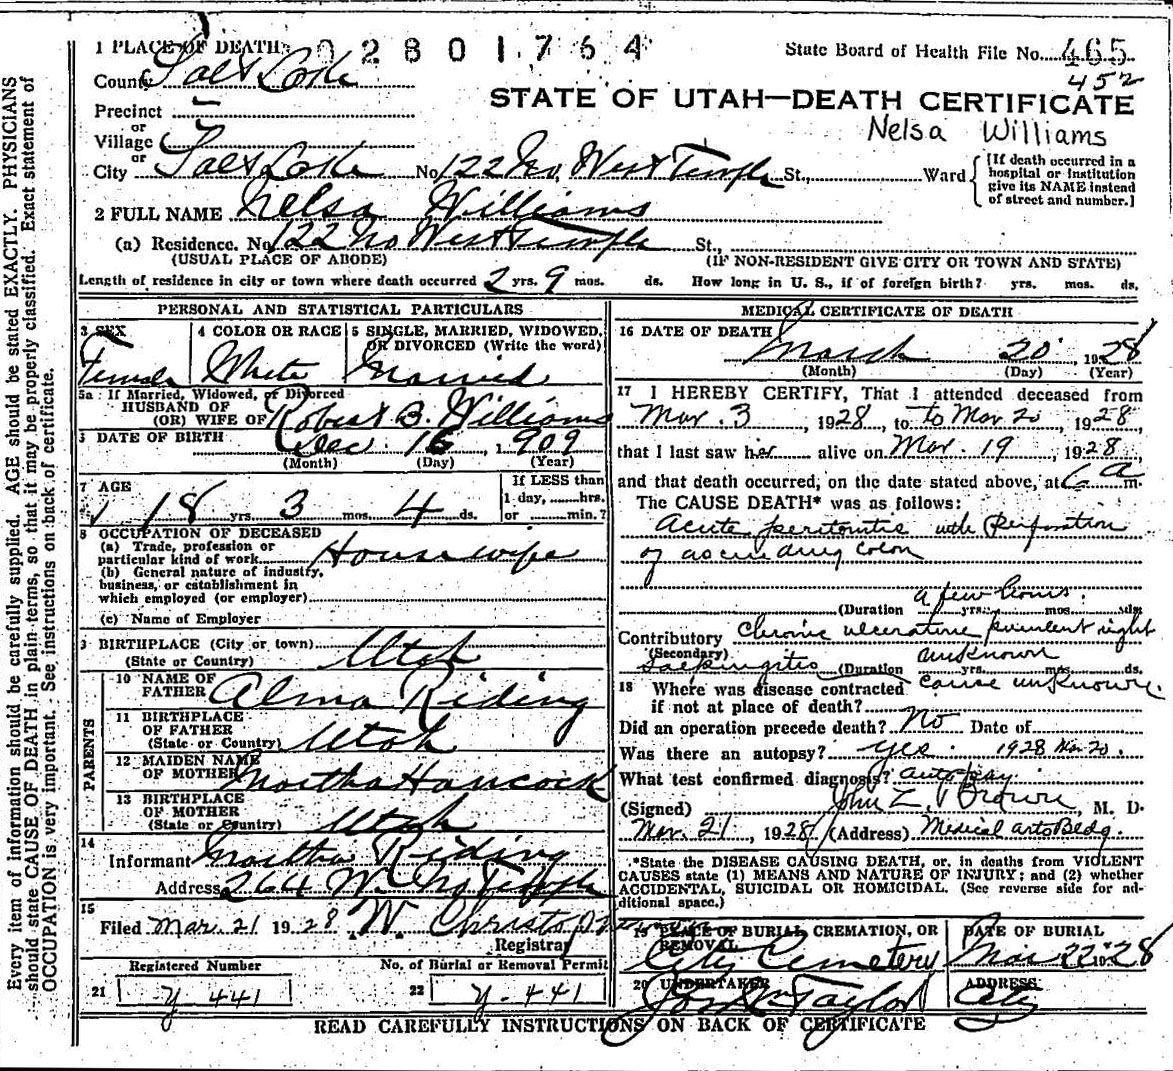 1 PLACE OF DEATH
02801764
State Board of Health File No. 465
452
County Salt Lake
STATE OF UTAH—DEATH CERTIFICATE
Precinct
Nelsa Williams
or
Village
or
City Salt Lake No. 122 No. West Temple St., Ward
[If death occurred in a
hospital or institution
give its NAME instead
of street and number.]
2 FULL NAME Nelsa Williams
(a) Residence. No. 122 No West Temple St.,
(USUAL PLACE OF ABODE) (IF NON-RESIDENT GIVE CITY OR TOWN AND STATE)
Length of residence in city or town where death occurred 2 yrs. 9 mos. ds. How long in U. S., if of foreign birth? yrs. mos. ds.
PERSONAL AND STATISTICAL PARTICULARS
3 SEX
Female
4 COLOR OR RACE
White
5 SINGLE, MARRIED, WIDOWED,
OR DIVORCED (Write the word)
Married
5a If Married, Widowed, or Divorced
HUSBAND OF
(OR) WIFE OF Robert B. Williams
6 DATE OF BIRTH Dec 16, 1909
(Month) (Day) (Year)
7 AGE
18 yrs. 3 mos. 4 ds.
If LESS than
1 day, ......hrs.
or ......min.?
8 OCCUPATION OF DECEASED
(a) Trade, profession or
particular kind of work Housewife
(b) General nature of industry,
business, or establishment in
which employed (or employer)
(c) Name of Employer
9 BIRTHPLACE (City or town)
(State or Country) Utah
PARENTS
10 NAME OF
FATHER Alma Riding
11 BIRTHPLACE
OF FATHER
(State or Country) Utah
12 MAIDEN NAME
OF MOTHER Martha Hancock
13 BIRTHPLACE
OF MOTHER
(State or Country) Utah
14
Informant Martha Riding
Address 264 W No Temple
15
Filed Mar. 21 1928 W. Christopherson
Registrar
Registered Number
21 y-441
No. of Burial or Removal Permit
22 y-441
MEDICAL CERTIFICATE OF DEATH
16 DATE OF DEATH
March 20 1928
(Month) (Day) (Year)
17 I HEREBY CERTIFY, That I attended deceased from
Mar. 3, 1928, to to Mar 20, 1928,
that I last saw her alive on Mar. 19, 1928,
and that death occurred, on the date stated above, at 6 a m.
The CAUSE DEATH* was as follows:
Acute peritonitis with perforation
of ascending colon
a few hours.
(Duration yrs. mos. ds.
Contributory chronic ulcerative purulent right
(Secondary) unknown
salpingitis (Duration yrs. mos. ds.
18 Where was disease contracted cause unknown.
if not at place of death?
Did an operation precede death? No Date of
Was there an autopsy? yes 1928 Mar 20.
What test confirmed diagnosis? autopsy.
(Signed) John Z. Brown, M. D.
Mar. 21, 1928 (Address) Medical Arts Bldg.
*State the DISEASE CAUSING DEATH, or, in deaths from VIOLENT
CAUSES state (1) MEANS AND NATURE OF INJURY; and (2) whether
ACCIDENTAL, SUICIDAL OR HOMICIDAL. (See reverse side for ad-
ditional space.)
19 PLACE OF BURIAL CREMATION, OR
REMOVAL
City Cemetery
DATE OF BURIAL
Mar 22 1928
20 UNDERTAKER
Jos. Wm Taylor
ADDRESS
City
READ CAREFULLY INSTRUCTIONS ON BACK OF CERTIFICATE
Every item of information should be carefully supplied. AGE should be stated EXACTLY. PHYSICIANS
should state CAUSE OF DEATH in plain terms, so that it may be properly classified. Exact statement of
OCCUPATION is very important. See instructions on back of certificate.